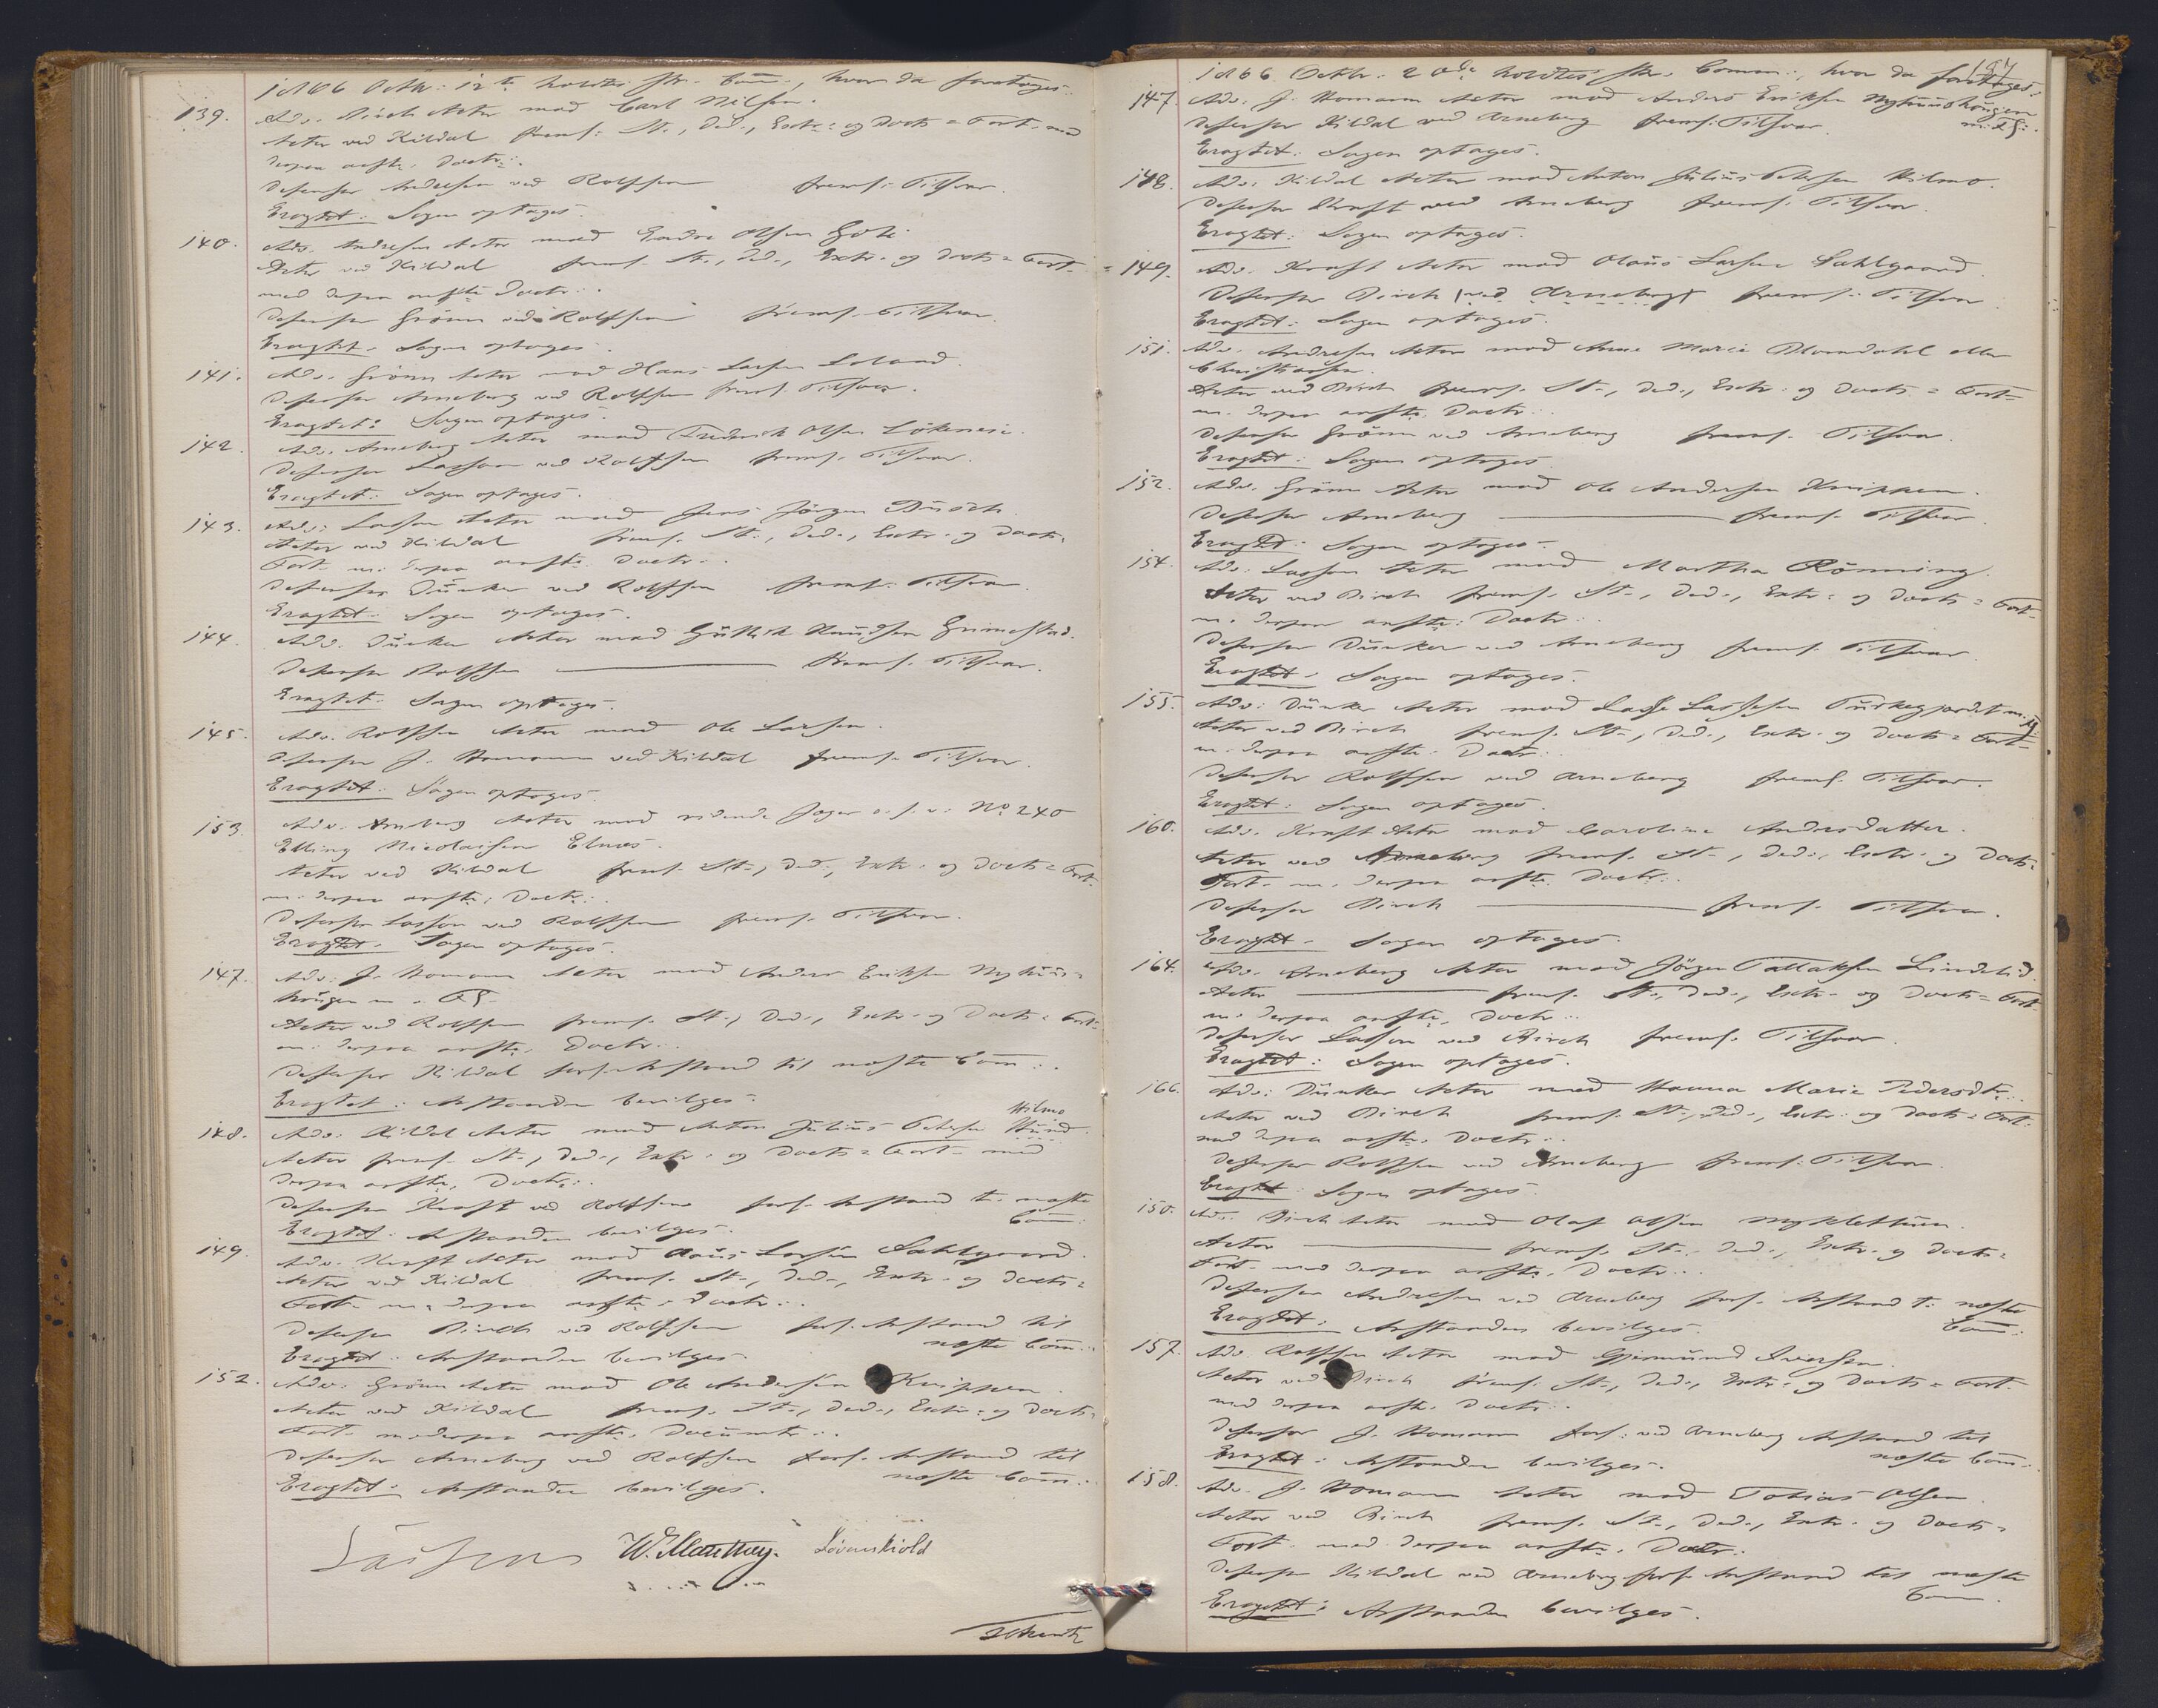 1866 Octbr: 12te holdtes Comm:, hvor da foretages:
139. Adv. Birch Actor mod Carl Nilsen.
Actor ved Kildal frems: St., Ded., Extr. og Docts = Fort. med
derpaa anfte. Doctr:.
Defensor Andresen ved Rolfsen frems: Tilsvar.
Eragtet: Sagen optages.
140. Adv. Andresen Actor mod Endre Olsen
Actor ved Kildal frems. St., Ded., Extr. og Docts = Fort.
med derpaa anfte Doctr:.
Defensor Grönn ved Rolfsen frems. Tilsvar.
Eragtet. Sagen optages.
141. Adv. Grönn Actor mod Hans Larsen Loland.
Defensor Arneberg ved Rolfsen frems. Tilsvar.
Eragtet: Sagen optages.
142. Adv. Arneberg Actor mod Fredrik Olsen
Defensor Lasson ved Rolfsen frems. Tilsvar.
Eragtet: Sagen optages.
143. Adv: Lasson Actor mod Jens Jörgen Busch
Actor ved Kildal frems. St., Ded., Extr. og Docts=
Fort. m. derpaa anfte. Doctr:.
Defensor Dunker ved Rolfsen frems. Tilsvar.
Eragtet: Sagen optages.
144. Adv. Dunker Actor mod Guttorm Knudsen Grimestad.
Defensor Rolfsen frems. Tilsvar.
Eragtet: Sagen optages.
145. Adv. Rolfsen Actor mod Ole Larsen.
Defensor J. Homann ved Kildal frems. Tilsvar.
Eragtet: Sagen optages.
153. Adv. Arneberg Actor mod ridende Jæger No 240
Elling Nicolaisen Elnæs.
Actor ved Kildal frems. St., Ded., Extr. og Docts = Fort.
m. derpaa anfte: Doctr:.
Defensor Lasson ved Rolfsen frems. Tilsvar.
Eragtet. Sagen optages.
147. Adv: J. Homann Actor mod Anders Eriksen Nyhuus=
hougen m. Fl.
Actor ved Rolfsen frems. St., Ded., Extr. og Docts = Fort.
m. derpaa anfte. Doctr:.
Defensor Kildal fors. Anstand til næste Com:.
Eragtet: Anstanden bevilges.
148. Adv: Kildal Actor mod Anton Julius Petersen Hilmo
Actor frems. St., Ded., Extr. og Docts = Fort. med
derpaa anfte, Doctr:.
Defensor Kraft ved Rolfsen fors. Anstand t. næste
Com:
Eragtet: Anstanden bevilges.
149. Adv. Kraft Actor mod Olaus Larsen Sahlgaard.
Actor ved Kildal frems. St., Ded., Extr. og Docts =
Fort. m. derpaa anfte. Doctr:.
Defensor Birch ved Rolfsen fors. Anstand til
næste Com:.
Eragtet: Anstanden bevilges.
152. Adv. Grönn Actor mod Ole Andersen Knippen.
Actor ved Kildal frems. St., Ded., Extr. og Docts=
Fort. m. derpaa anfte. Documtr:.
Defensor Arneberg ved Rolfsen fors. Anstand til
næste Com:.
Eragtet. Anstanden bevilges.
W. Manthey. Lövenskiold
197
1866 Octbr: 20de holdtes Comm:, hvor da foretages:
147. Adv: J. Homann Actor mod Anders Eriksen Nyhuushougen
m. Fl:
Defensor Kildal ved Arneberg frems: Tilsvar.
Eragtet: Sagen optages.
148. Adv: Kildal Actor mod Anton Julius Petersen Hilmo.
Defensor Kraft ved Arneberg frems. Tilsvar.
Eragtet: Sagen optages.
149. Adv. Kraft Actor mod Olaus Larsen Sahlgaard
Defensor Birch (ved Arneberg) frems: Tilsvar
Eragtet: Sagen optages.
151. Adv. Andresen Actor mod Anne Marie Blomdahl eller
Christiansen.
Actor ved Birch frems. St., Ded., Extr. og Docts = Fort=
m. derpaa anfte. Doctr:.
Defensor Grönn ved Arneberg frems. Tilsvar.
Eragtet: Sagen optages
152. Adv. Grönn Actor mod Ole Andersen Knippen.
Defensor Arneberg frems. Tilsvar.
Eragtet: Sagen optages.
154. Adv: Lasson Actor mod Martha Rönning.
Actor ved Birch frems. St., Ded., Extr: og Docts = Fort.
m. derpaa anfte: Doctr:.
Defensor Dunker ved Arneberg frems. Tilsvar.
Eragtet. Sagen optages.
155. Adv: Dunker Actor mod Lasse Lassesen m. Fl.
Actor ved Birch frems. St., Ded., Extr. og Docts = Fort.
m. derpaa anfte. Doctr:.
Defensor Rolfsen ved Arneberg frems. Tilsvar.
Eragtet: Sagen optages.
160. Adv. Kraft Actor mod Caroline Andersdatter.
Actor ved Arneberg frems. St., Ded., Extr. og Docts=
Fort. m. derpaa anfte. Doctr:.
Defensor Birch frems. Tilsvar.
Eragtet. Sagen optages.
164. Adv. Arneberg Actor mod Jörgen Tallaksen Lindelid.
Actor frems. St., Ded., Extr. og Docts = Fort.
m. derpaa anfte. Doctr:.
Defensor Lasson ved Birch frems. Tilsvar.
Eragtet: Sagen optages.
166. Adv: Dunker Actor mod Hanna Marie Pedersdtr.
Actor ved Birch frems. St., Ded., Extr: og Docts = Fort.
med derpaa anfte. Doctr:.
Defensor Rolfsen ved Arneberg frems: Tilsvar.
Eragtet: Sagen optages.
150. Adv. Birch Actor mod Olaf Olsen Myklethun.
Actor frems. St., Ded., Extr. og Docts=
Fort. med derpaa anfte. Doctr:.
Defensor Andresen ved Arneberg fors. Anstand t. næste
Com:
Eragtet: Anstanden bevilges.
157. Adv. Rolfsen Actor mod Gjermund Iversen.
Actor ved Birch frems. St., Ded., Extr. og Docts = Fort.
med derpaa anfte. Doctr:.
Defensor J. Homann fors: ved Arneberg Anstand til
næste Com:.
Eragtet: Anstanden bevilges.
158. Adv. J. Homann Actor mod Tobias Olsen
Actor ved Birch frems. St., Ded., Extr. og Docts=
Fort. med derpaa anfte. Doctr:.
Defensor Kildal ved Arneberg fors. Anstand til næste
Com.
Eragtet: Anstanden bevilges.